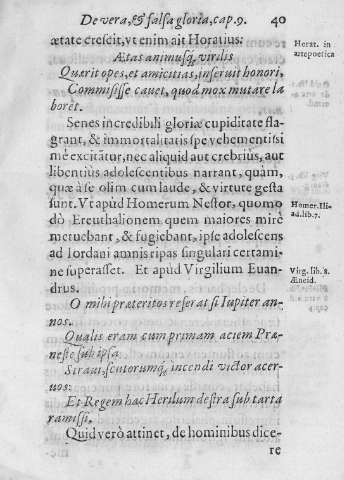 De vera, & falsa gloria, cap. 9. 40
ætate crescit, vt enim ait Horatius:
Horat. in
artepoetica
Ætas animusq́; virilis
Quærit opes, et amicitias, inseruit honori,
Commisisse cauet, quod mox mutare la
boret.
Senes incredibili gloriæ cupiditate fla-
grant, & immortalitatis spe vehementissi
mè excitãtur, nec aliquid aut crebriùs, aut
libentiùs adolescentibus narrant, quàm,
quæ à se olim cum laude, & virtute gesta
sunt. Vt apùd Homerum Nestor, quomo
Homer. Ili-
ad. lib. 7.
dò Ereuthalionem quem maiores mirè
metuebant, & fugiebant, ipse adolescens
ad Iordani amnis ripas singulari certami-
ne superasset. Et apùd Virgilium Euan-
Virg. lib. 8.
Æneid.
drus.
O mihi præteritos referat si Iupiter an-
nos.
Qualis eram cum primam aciem Præ-
neste sub ipsa
Straui, scutorumq́; incendi victor acer-
uos:
Et Regem hac Herilum destra sub tarta
ra misi.
Quid verò attinet, de hominibus dice-
re